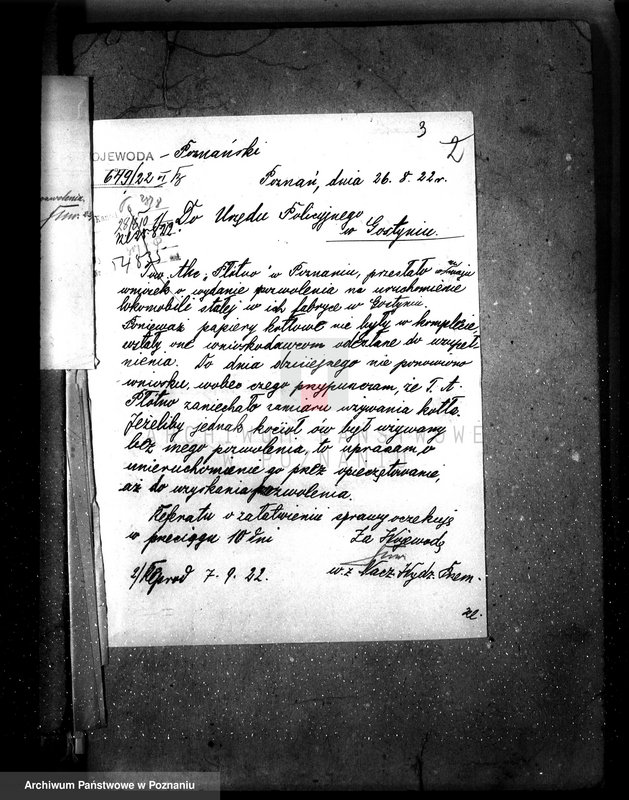 3
2
WOJEWODA - Poznański
649/22
Poznań, dnia 26.8.22r.
Do Urzędu Policyjnego
w Gostyniu.
Tow. Akc. „Płótno" w Poznaniu, przesłało w maju
wniosek o wydanie pozwolenia na uruchomienie
lokomobili stałej w ich fabryce w Gostyniu.
Ponieważ papiery kotłowe nie były w komplecie,
zostały one wnioskodawcom odesłane do uzupeł-
nienia. Do dnia dzisiejszego nie ponowiono
wniosku, wobec czego przypuszczam, że T. A.
Płótno zaniechało zamiaru używania kotła.
Jeżeliby jednak kocioł ów był używany
bez mego pozwolenia, to upraszam o
unieruchomienie go przez opieczętowanie,
aż do uzyskania pozwolenia.
o załatwieniu sprawy oczekuję
w przeciągu 10 dni
Za Wojewodę
2/ 7.9.22.
w. z. Nacz. Wydz. Przem.
Archiwum Państwowe w Poznaniu